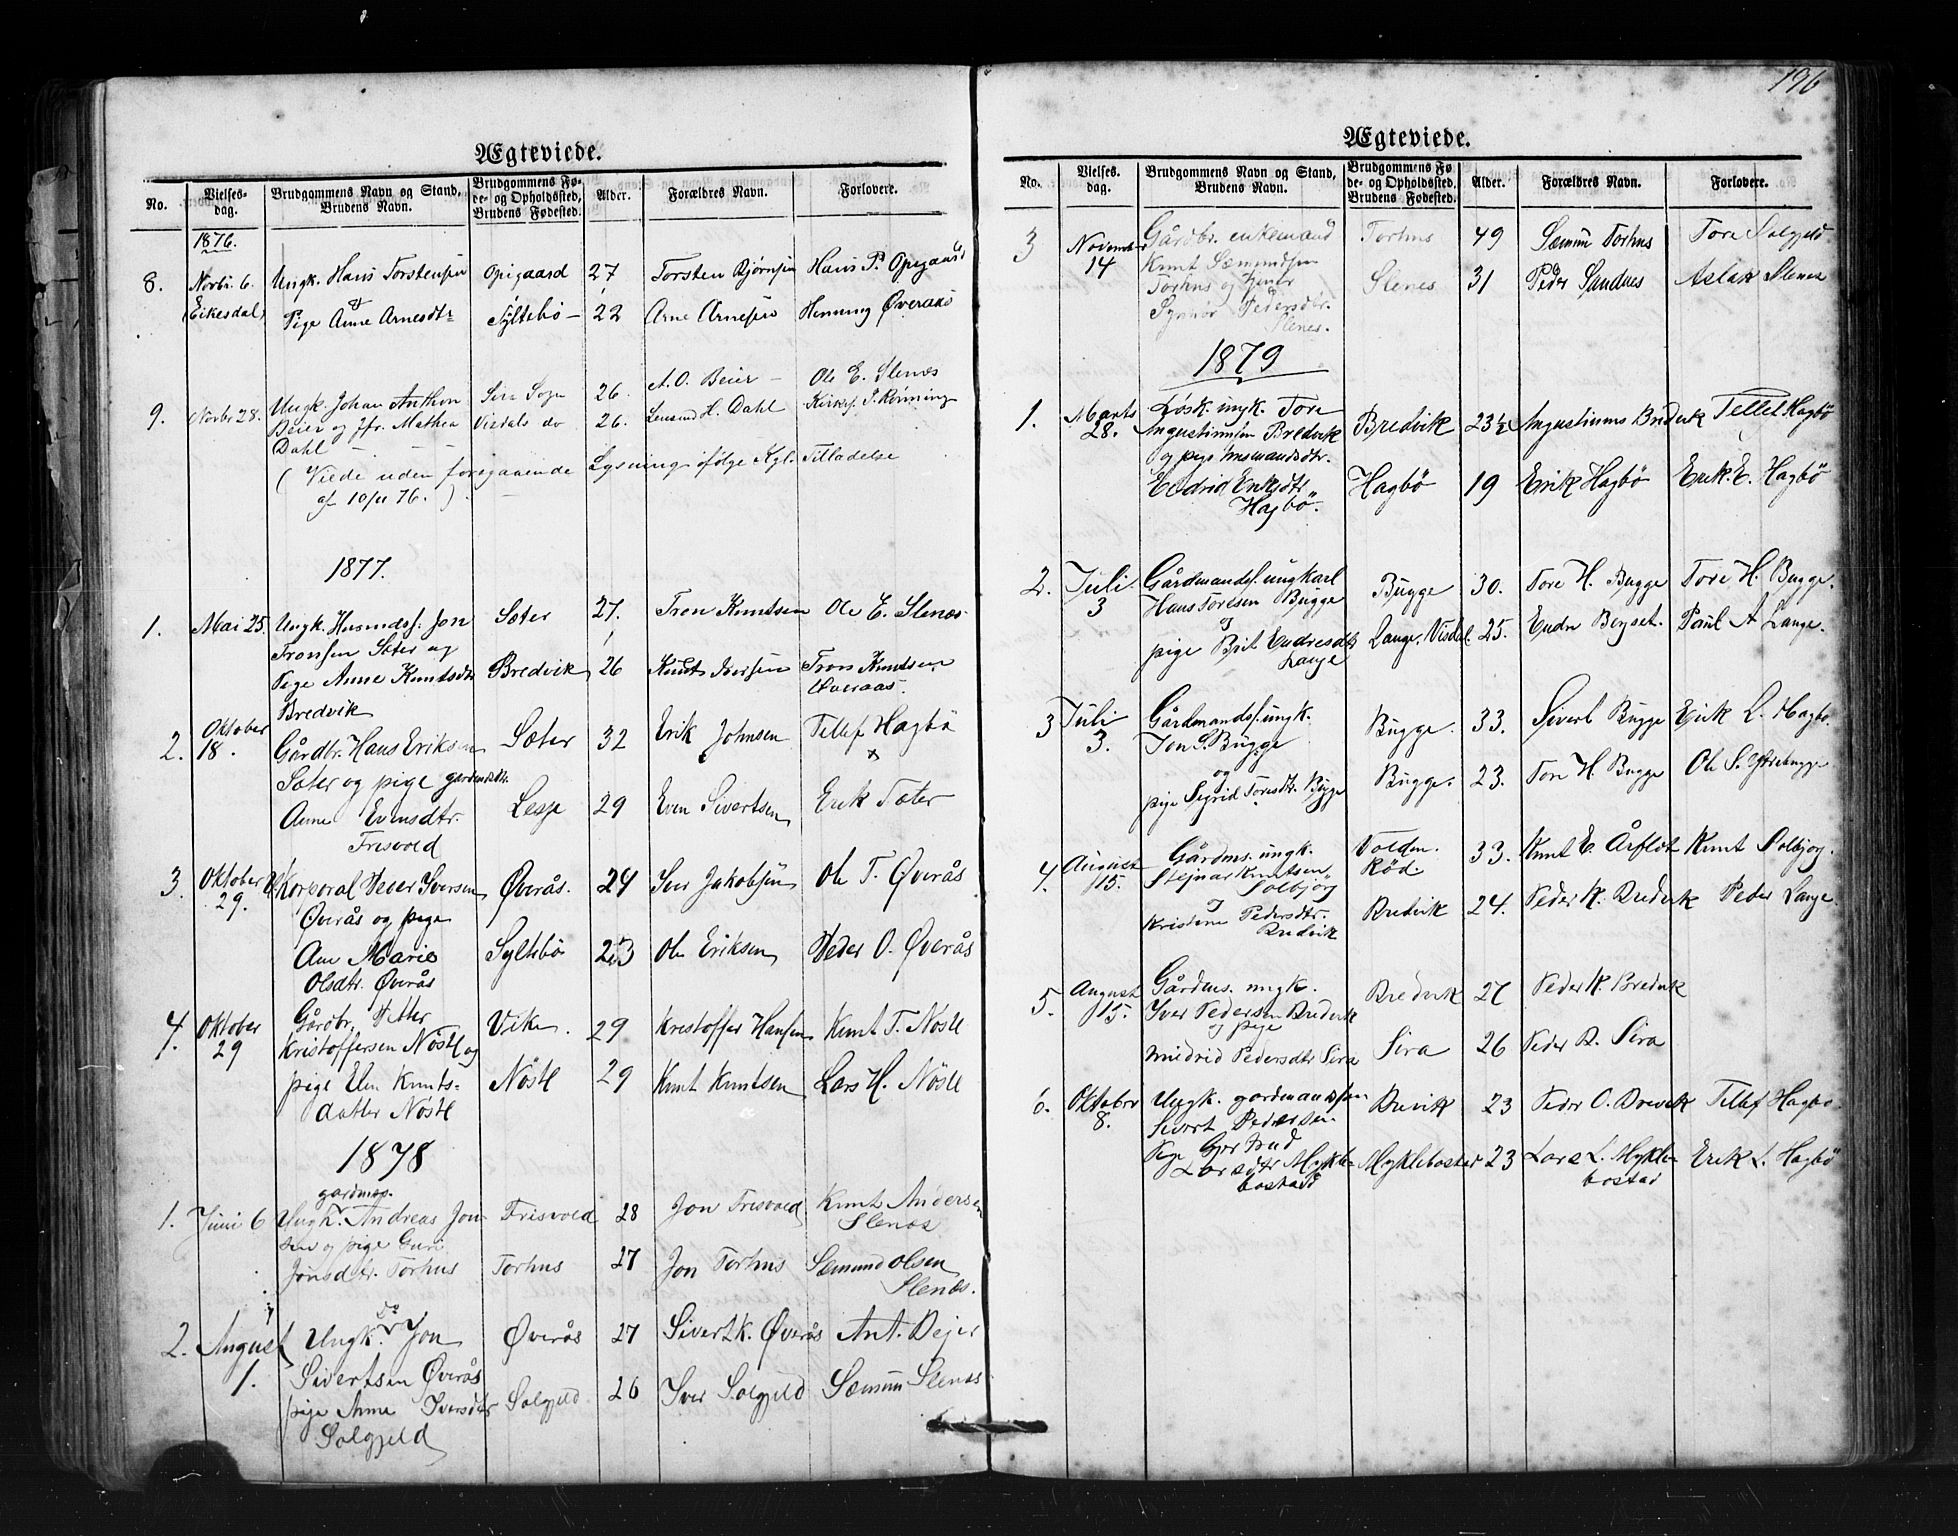 196
Ægteviede.
No. | Vielses-dag. | Brudgommens Navn og Stand, Brudens Navn. | Brudgommens Føde- og Opholdssted, Brudens Fødested. | Alder. | Forældres Navn. | Forlovere.
1876.
8. | Novbr. 6. | Ungk. Hans Torstensen | Opigaard | 27 | Torsten Bjørnsen | Hans P. Opigaard
(Eikesdal) | & Pige Anne Arnesdtr | Syltebø | 22 | Arne Arnesen | Henning Øveraas
9. | Novbr 28. | Ungk. Johan Anthon | Sira Sogn | 26. | A. O. Beier | Ole E. Slenæs
Beier og Jfr. Mathea | Visdals do | 26. | Lensmd H. Dahl | Kirkes. J. Rønning
Dahl
(Viede uden foregaaende Lysning ifølge Kgl. Tilladelse
af 10/11 76.)
1877.
1. | Mai 25. | Ungk. Husmdss. Jon | Sæter | 27. | Tron Knutsen | Ole E. Slenæs
Tronsen Sæter og
Pige Anne Knutsdtr | Bredvik | 26 | Knut Iversen | Tron Knutsen
Bredvik | Øveraas.
2. | Oktober 18. | Gårdbr. Hans Eriksen | Sæter | 32 | Erik Johnsen | Tellef Hagbø
Sæter og pige gardmdsdtr.
Anne Evensdtr. | Lesje | 29 | Even Sivertsen | Erik Sæter
Frisvold
3. | Oktober 29. | Korporal Peter Iversen | Øverås. | 24 | Iver Jakobsen | Ole T. Øverås
Øverås og pige
Ane Marie | Syltebø | 23 | Ole Eriksen | Peder O. Øverås
Olsdtr. Øverås
4. | Oktober 29 | Gårdbr. Petter | Vike. | 29 | Kristoffer Hansen | Knut T. Nöste
Kristoffersen Nöste og
pige Elen Knuts- | Nöste | 29 | Knut Knutsen | Lars H. Nöste
datter Nöste
1878
gardmss.
1. | Juni 6 | Ungk. Andreas Jon- | Frisvold | 28 | Jon Frisvold | Knut Andersen
sen og pige Guri | Slenæs
Jonsdtr. Torhus | Torhus | 27 | Jon Torhus | Sæmund Olsen
Slenæs.
do
2. | August 1. | Ungk. Jon | Øverås | 27 | Sivert K. Øverås | Ant. Bejer
Sivertsen Øverås
pige Anne Iversdtr | Solgjeld | 26 | Iver Solgjeld | Sæmun Slenæs
Solgjeld
Ægteviede.
No. | Vielses-dag. | Brudgommens Navn og Stand, Brudens Navn. | Brudgommens Føde- og Opholdssted, Brudens Fødested. | Alder. | Forældres Navn. | Forlovere.
3 | November 14 | Gårdbr. enkemand | Torhus | 49 | Sæmun Torhus | Tore Solgjeld
Knut Sæmundsen
Torhus og | Slenes | 31 | Peder Sandnes | Aslak Slenes
Synnøv Pedersdtr.
Slenes.
1879
1. | Marts 28. | Løsk. ungk. Tore | Bredvik | 23½ | Augustinus Bredvik | Tellef Hagbø
Augustinusen Bredvik
og pige husmandsdtr.
Endrid Eriksdtr | Hagbø | 19 | Erik Hagbø | Erik. E. Hagbø
Hagbö.
2. | Juli 3 | Gårdmandss. ungkarl | Bugge | 30. | Tore H. Bugge | Tore H. Bugge.
Hans Toresen Bugge
og
pige Brit Endresdtr | Lange, Visdal. | 25. | Endre Bejset. | Paul A Lange.
Lange
3 | Juli 3. | Gårdmandss. ungk. | Bugge. | 33. | Sivert Bugge | Erik L. Hagbø.
Jon S. Bugge
og
pige Sigrid Toresdt. Bugge | Bugge. | 23. | Tore H. Bugge | Ole S. Ytrebugge
4. | August 15. | Gårdms. ungk. | Volden. | 33. | Knut E. Årflot | Knut Solbjør.
Stejnar Knutsen | Rød.
Solbjørg
og
Kristine Pedersdtr. | Bredvik | 24. | Peder K. Bredvik | Peder Lange.
Bredvik
5. | August 15. | Gårdms. ungk. | Bredvik | 27 | Peder K. Bredvik
Iver Pedersen Bredvik
og pige
Mildrid Pedersdtr Sira | Sira | 26 | Peder R. Sira
6. | Oktober 8. | Ungk. gardmandssøn | Brevik | 23 | Peder O. Brevik | Tellef Hagbø.
Sivert Pedersen
Pige Gjertrud
Larsdtr Mykle- | Myklebostad | 23 | Lars L. Mykle- | Erik L. Hagbø
bostad | bostad